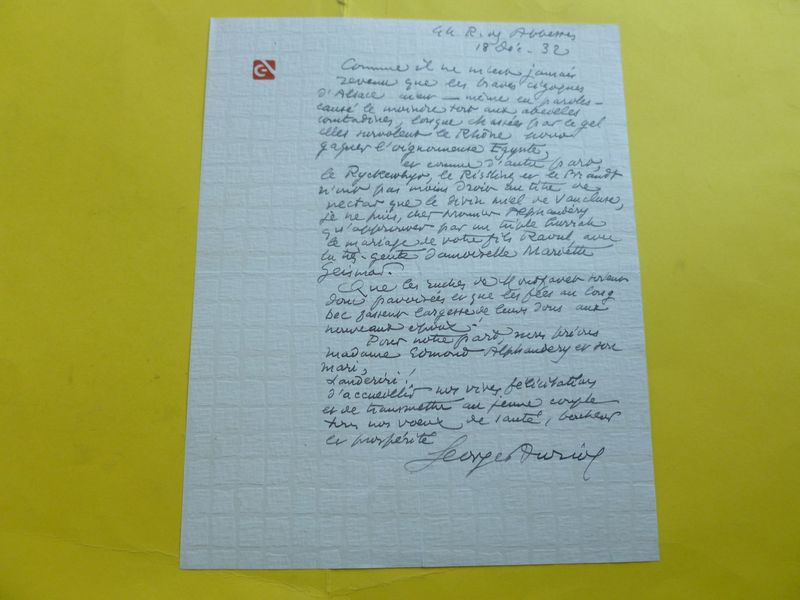 44 R. des Abbesses
18 Déc. 32
Comme il ne m'est jamais
revenu que les braves cigognes
d'Alsace aient — même en paroles —
causé le moindre tort aux abeilles
comtadines, lorsque chassées par le gel
elles survolent le Rhône pour
gagner l'oignonneuse Egypte,
et comme d'autre part,
le Ryckewhyr, le Rissling et le Brandt
n'ont pas moins droit au titre de
nectar que le divin miel de Vaucluse,
je ne puis, cher Alphandéry
qu'approuver par un triple hurrah
le mariage de votre fils Raoul, avec
la très-gente damoiselle Mariette
Geismar.
Que les ruches de Montfavet soient
donc pavoisées et que les fées au long
bec fassent largesse de leurs dons aux
nouveaux époux!
Pour notre part, nous prions
madame Edmond Alphandéry et son
mari,
Landeriri!
d'accueillir nos vives félicitations
et de transmettre au jeune couple
tous nos voeux de santé, bonheur
et prospérité
George Auriol